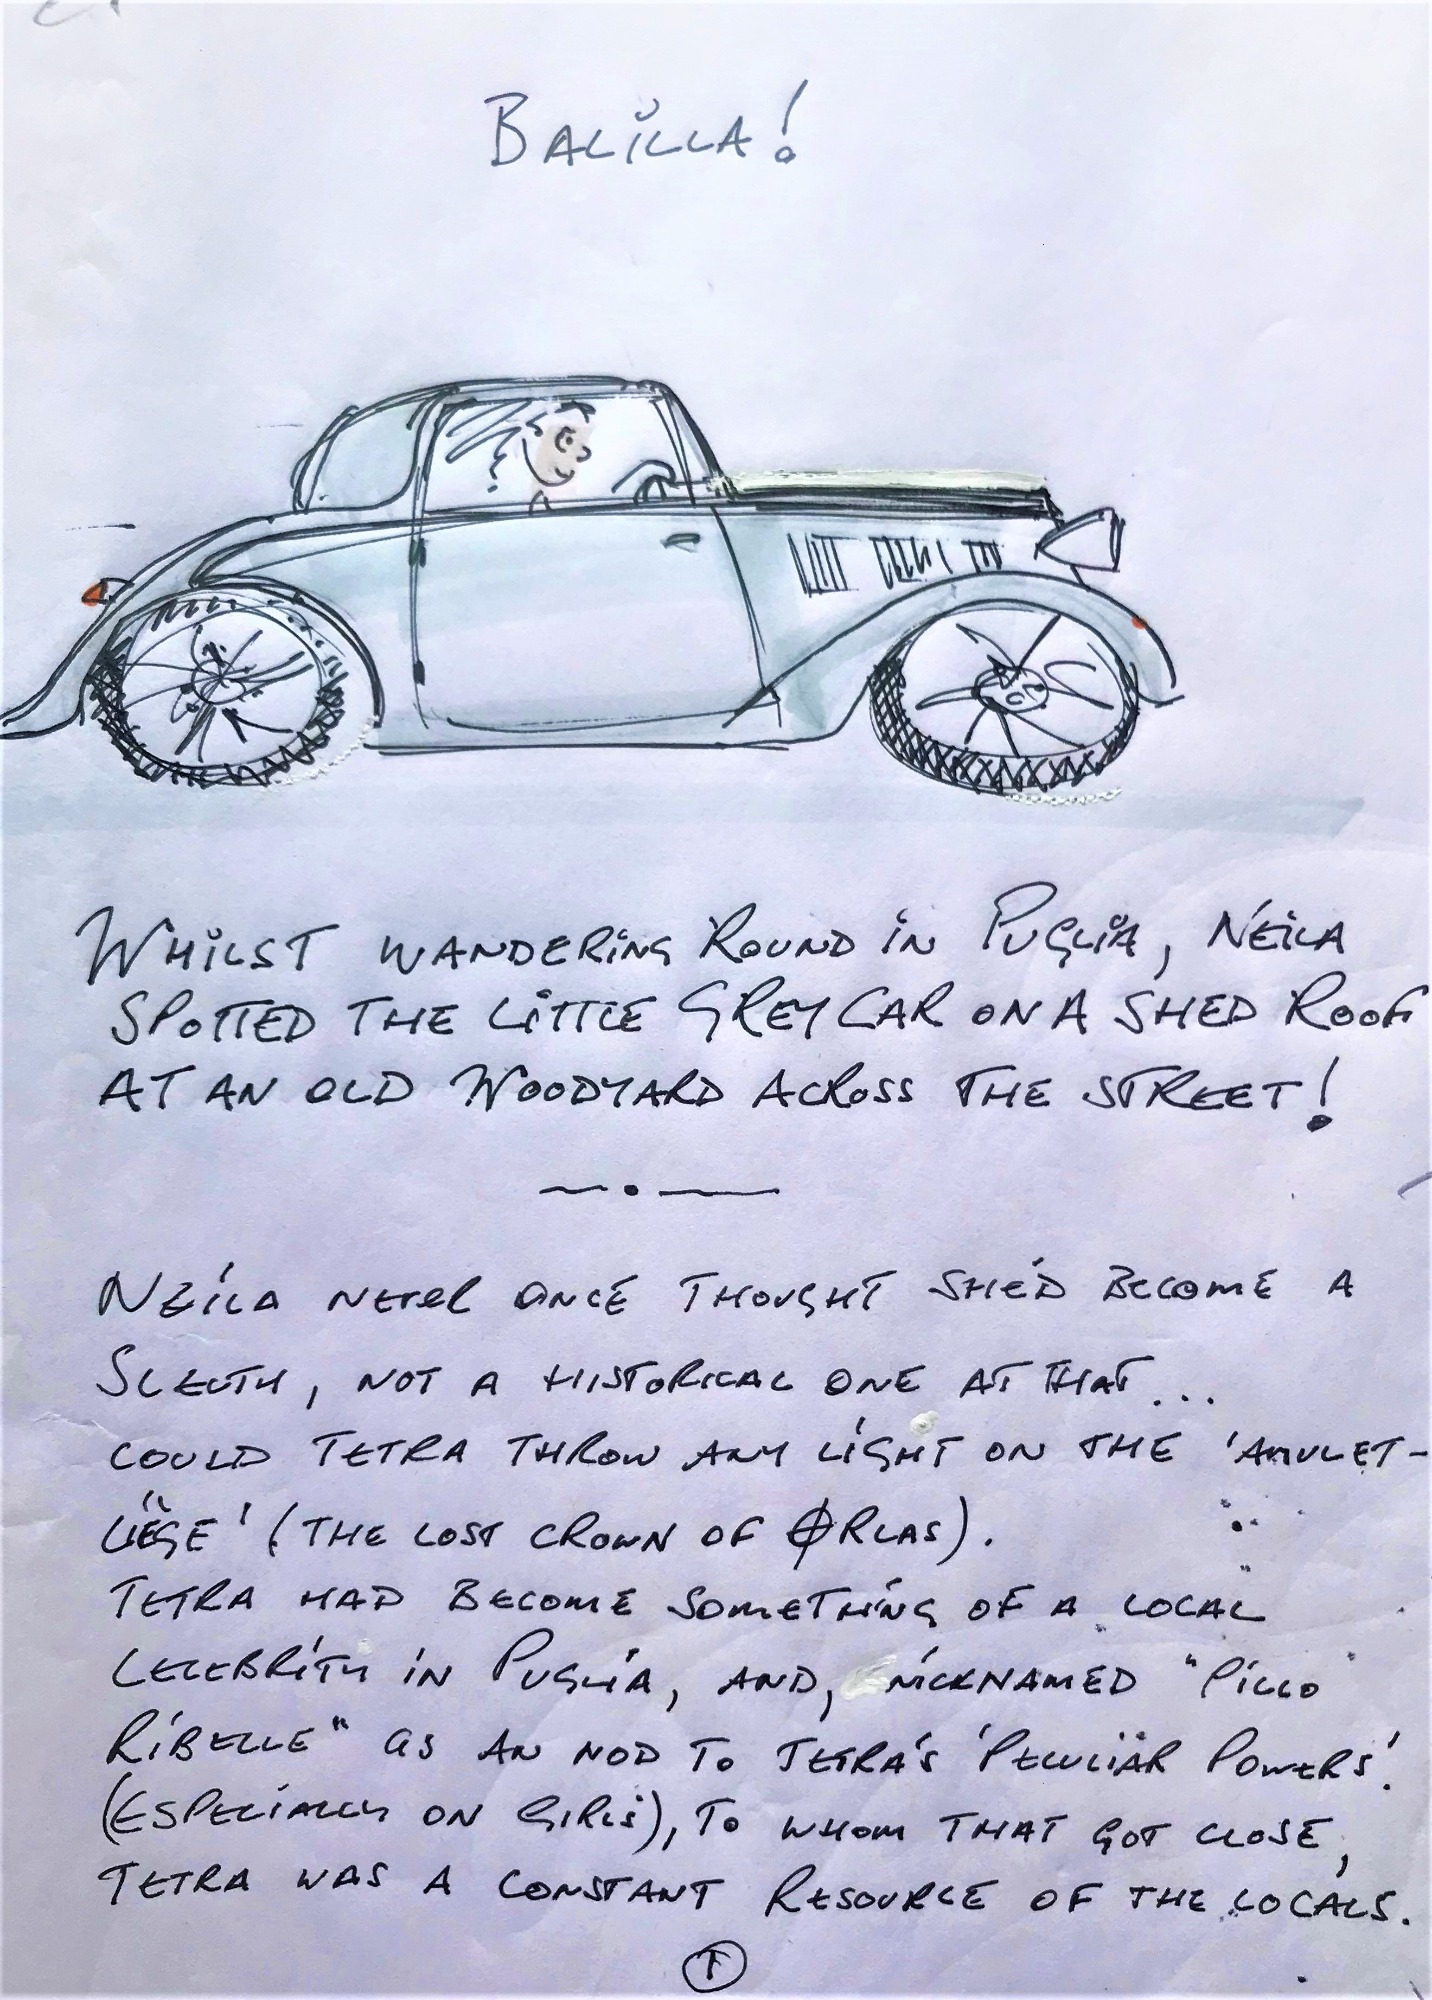 BALILLA!
WHILST WANDERING ROUND IN PUGLIA, NEILA
SPOTTED THE LITTLE GREY CAR ON A SHED ROOF
AT AN OLD WOODYARD ACROSS THE STREET!
NEILA NEVER ONCE THOUGHT SHE'D BECOME A
SLEUTH, NOT A HISTORICAL ONE AT THAT...
COULD TETRA THROW ANY LIGHT ON THE 'AMULET-
LIËGE' (THE LOST CROWN OF ØRLAS).
TETRA HAD BECOME SOMETHING OF A LOCAL
CELEBRITY IN PUGLIA, AND, NICKNAMED "PILLO
RIBELLE" AS AN NOD TO TETRA'S 'PECULIAR POWERS'.
(ESPECIALLY ON GIRLS), TO WHOM THAT GOT CLOSE,
TETRA WAS A CONSTANT RESOURCE OF THE LOCALS.